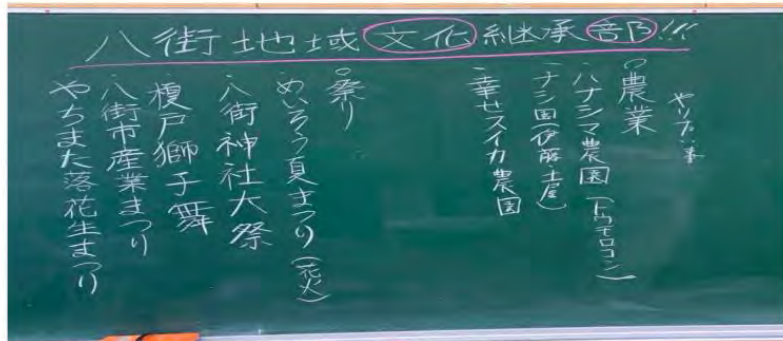 八街地域文化継承部!!!
やりたい事
○農業
ハナシマ農園(トウモロコシ)
ナシ園(伊藤・土屋)
幸せスイカ農園
○祭り
めいそう夏まつり(花火)
八街神社大祭
榎戸獅子舞
八街市産業まつり
やちまた落花生まつり